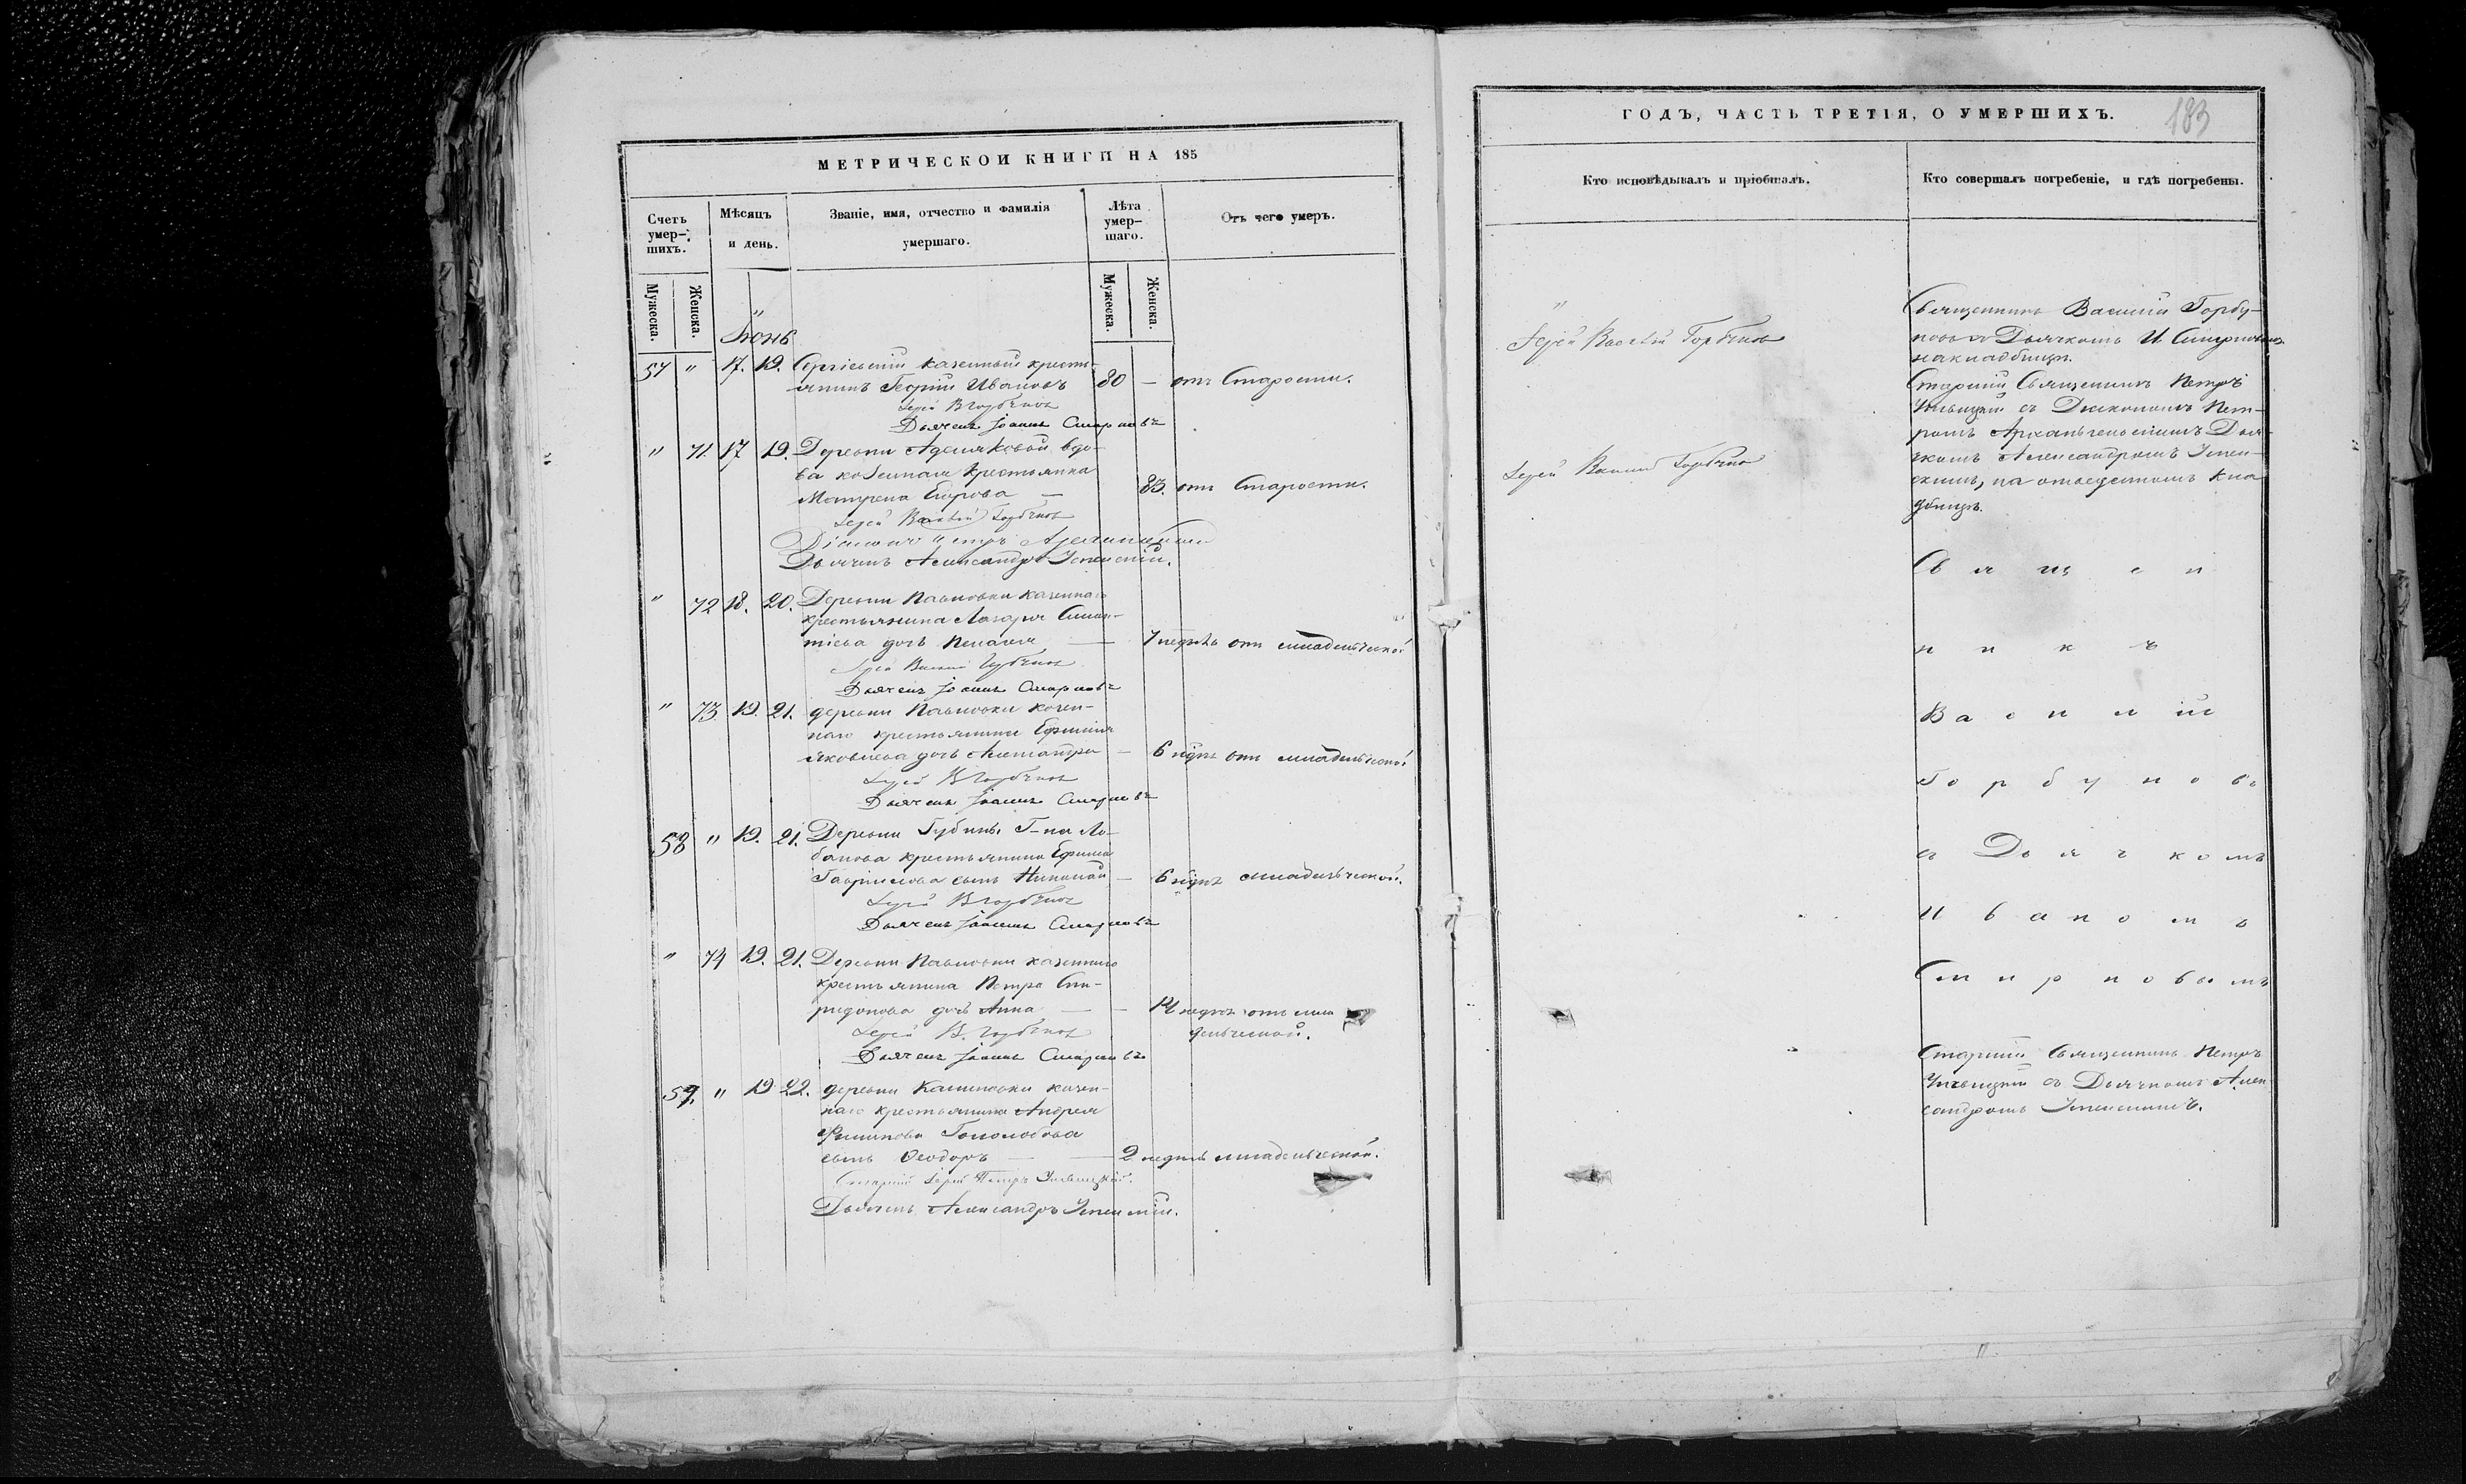 МЕТРИЧЕСКОЙ КНИГИ НА 185
Счетъ умер-шихъ.
Мѣсяцъ и день.
Званіе, имя, отчество и фамилія умершаго.
Лѣта умер-шаго.
Отъ чего умеръ.
Мужеска.
Женска.
Мужеска.
Женска.
Іюнь
57 " 17. 19. Сергіевскій казенный кресть-
янинъ Георгій Ивановъ 80 — отъ Старости.
Іерей В Горбуновъ
Дьячекъ Іоаннъ Смирновъ
" 71. 17 19. Деревни вдо-
ва казенная крестьянка
Матрена Егорова — 83. отъ Старости.
Іерей Василій Горбуновъ
Діаконъ Петръ
Дьячекъ Александръ Успенскій.
" 72 18. 20. Деревни Павловки казеннаго
крестьянина Лазаря
дочь Пелагея — 7 недѣль отъ младенческой
Іерей Василій Горбуновъ
Дьячекъ Іоаннъ Смирновъ
" 73. 19. 21. деревни Павловки казен-
наго крестьянина Ефимія
Яковлева дочь — 6 недѣль отъ младенческой
Іерей В Горбуновъ
Дьячекъ Іоаннъ Смирновъ
58 " 19. 21. Деревни Губины Г-на Ло-
банова крестьянина Ефимія
Гаврилова сынъ Николай — 6 недѣль младенческой.
Іерей В Горбуновъ
Дьячекъ Іоаннъ Смирновъ
" 74 19. 21. Деревни Павловки казеннаго
крестьянина Петра Спи-
ридонова дочь Анна — 14 недѣль отъ мла
денческой.
Іерей В. Горбуновъ
Дьячекъ Іоаннъ Смирновъ
59. " 19 22. деревни Калиновки казен-
наго крестьянина Андрея
Филипова Гололобова
сынъ Ѳеодоръ — 2 недѣль младенческой.
Старшій Іерей Петръ
Дьячекъ Александръ Успенскій.
ГОДЪ, ЧАСТЬ ТРЕТІЯ, О УМЕРШИХЪ.
183
Кто исповѣдывалъ и пріобщалъ.
Кто совершалъ погребеніе, и гдѣ погребены.
Іерей Василій Горбуновъ
Іерей Василій Горбуновъ
Священникъ Василій Горбу-
новъ съ Дьячкомъ И Смирновымъ
на кладбищѣ.
Старшій Священникъ Петръ
съ Діакономъ Пет-
ромъ Архангельскимъ Дья-
чкомъ Александромъ Успен-
скимъ, на отведенномъ кла
дбищѣ.
Священ
никъ
Василій
Горбуновъ
съ Дьячкомъ
Иваномъ
Смирновымъ
Старшій Священникъ Петръ
съ Дьячкомъ Алек
сандромъ Успенскимъ.